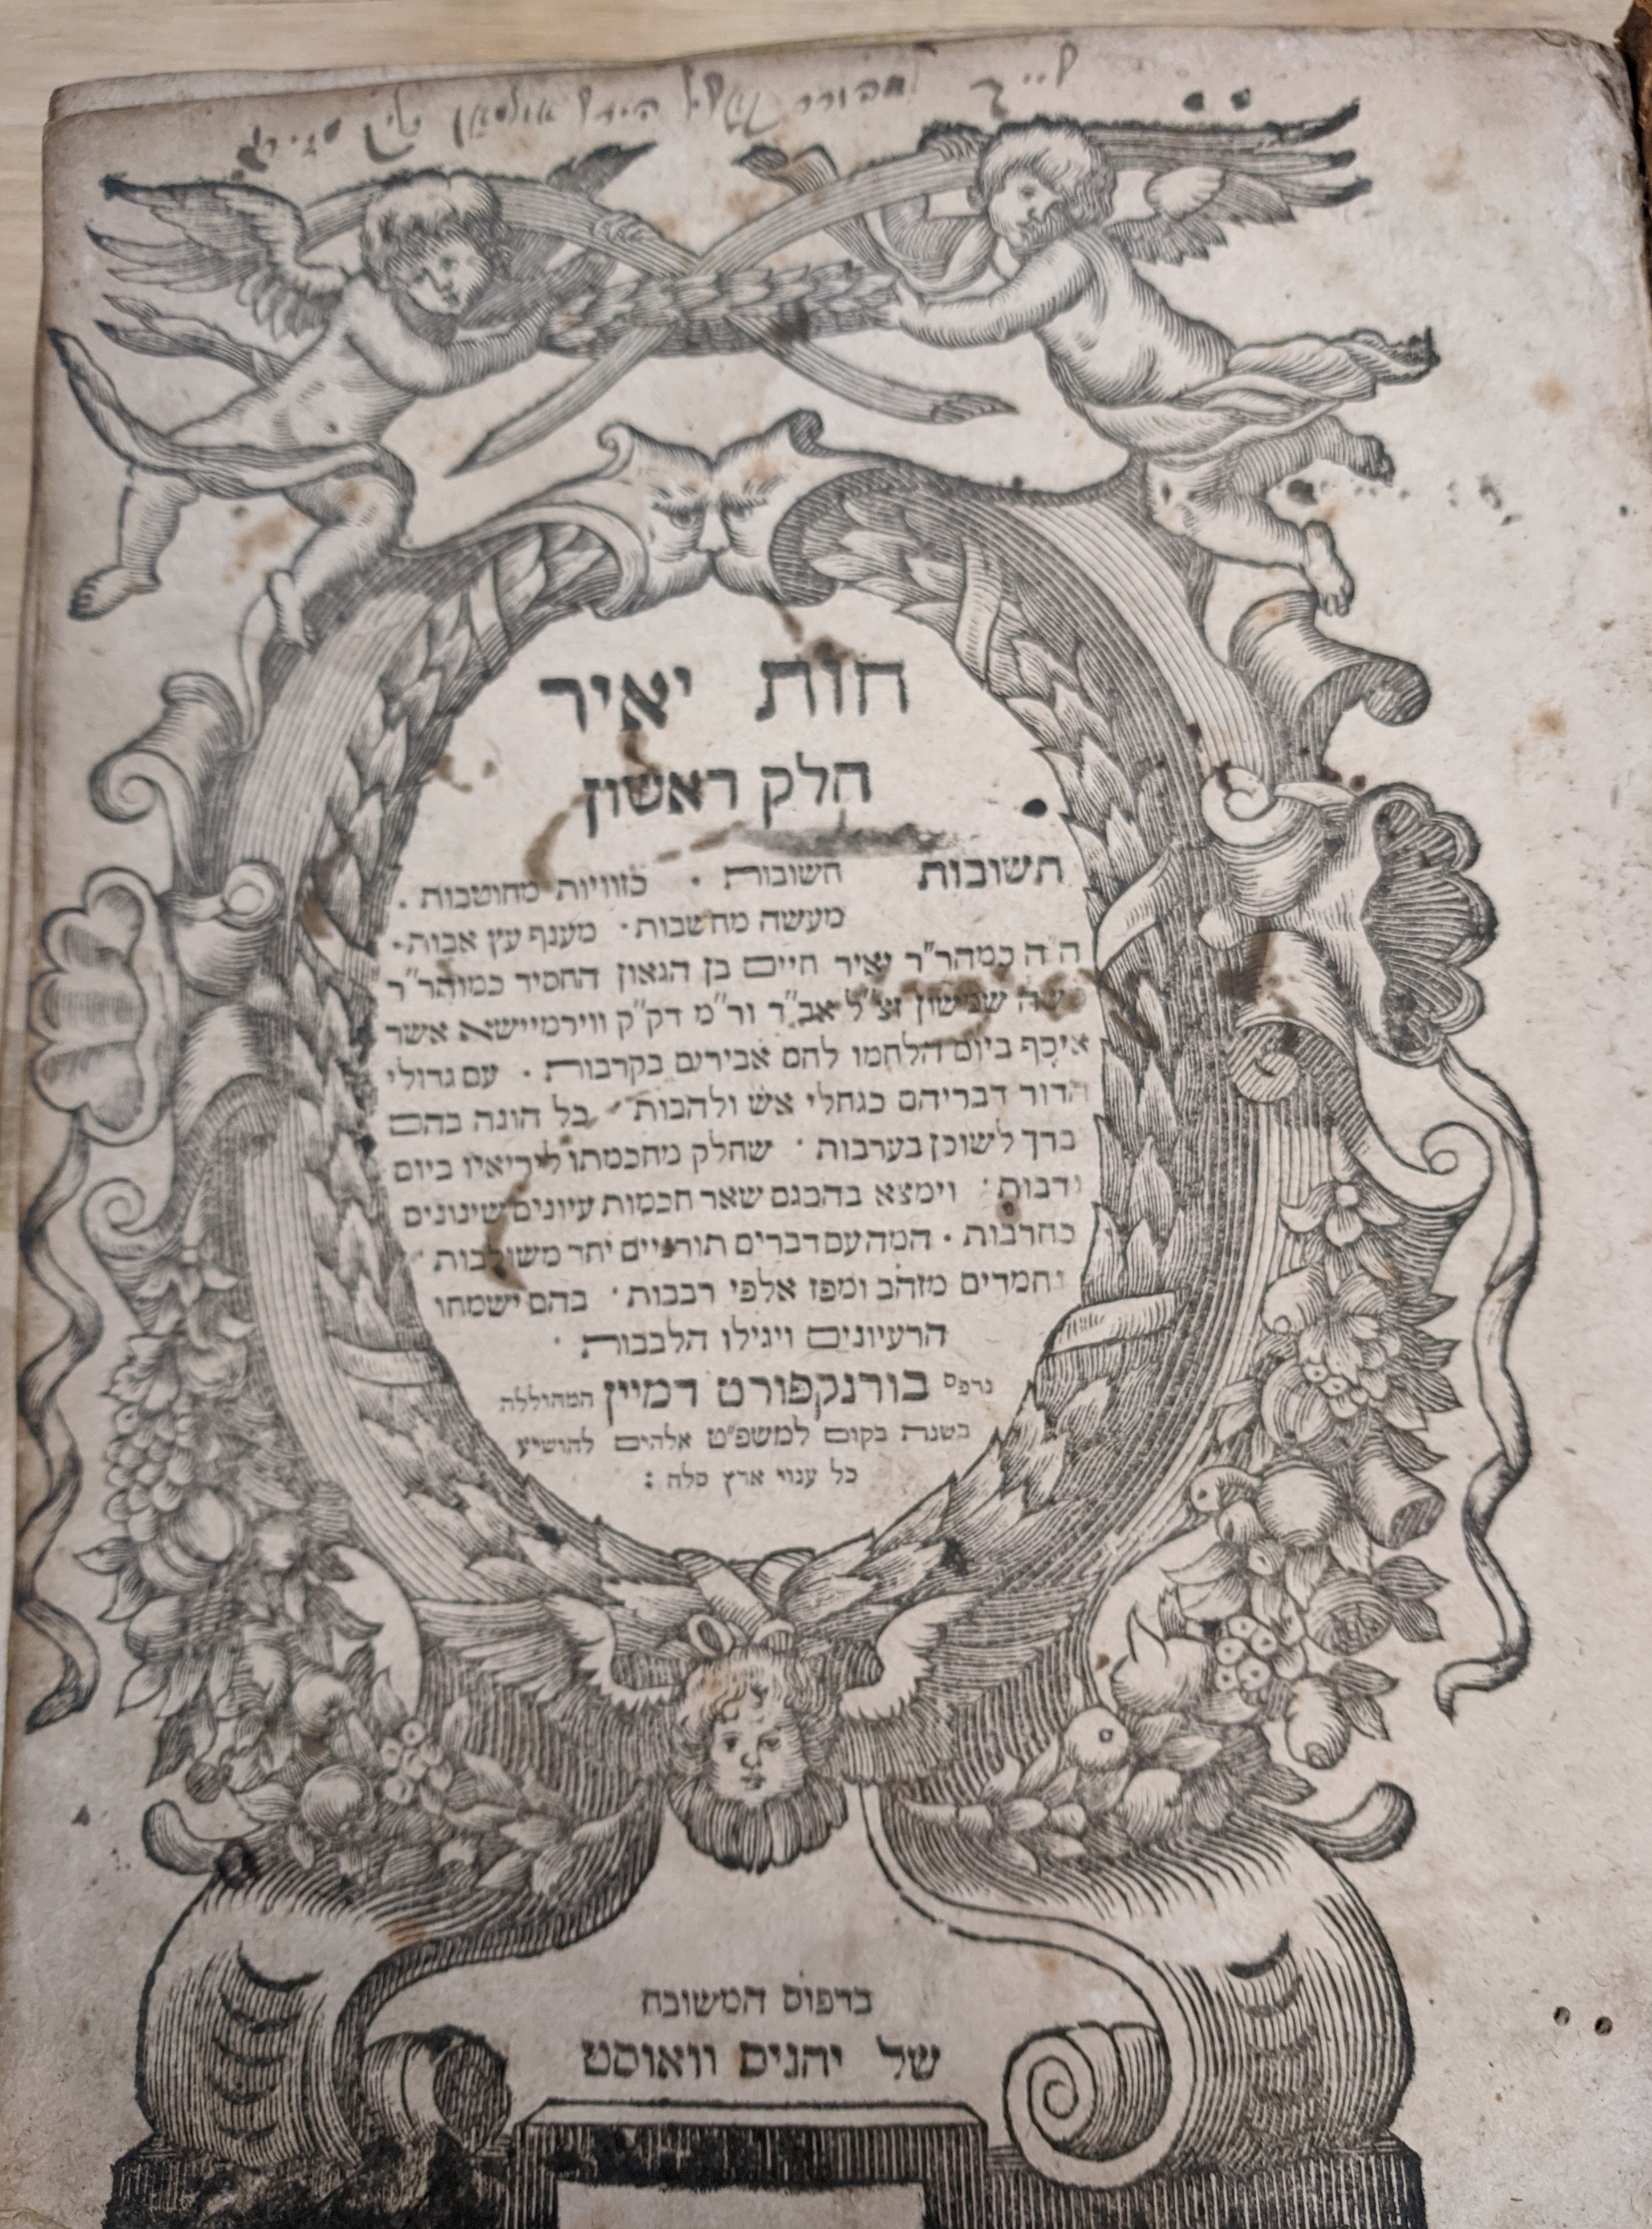 חות יאיר
חלק ראשון
תשובות חשובות · כזוויות מחוטבות .
מעשה מחשבות · מענף עץ אבות ·
ה"ה כמהר"ר יאיר חיים בן הגאון החסיד כמוהר"ר
משה שמשון זצ"ל אב"ד ור"מ דק"ק ווירמיישא אשר
איכף ביום הלחמו לחם אבירים בקרבות · עם גדולי
הדור דבריהם כגחלי אש ולהבות · כל הוגה בהם
ברך לשוכן בערבות · שחלק מחכמתו ליריאיו ביום
נדבות · וימצא בהבגם שאר חכמות עיונים שינונים
כחרבות · המה עם דברים תוריים יחד משולבות ·
נחמדים מזהב ומפז אלפי רבבות · בהם ישמחו
הרעיונים ויגילו הלבבות ·
נדפס בורנקפורט דמיין המהוללה
בשנת בקום למשפ"ט אלהים להושיע
כל ענוי ארץ סלה :
בדפוס המשובח
של יהניס וואוסט